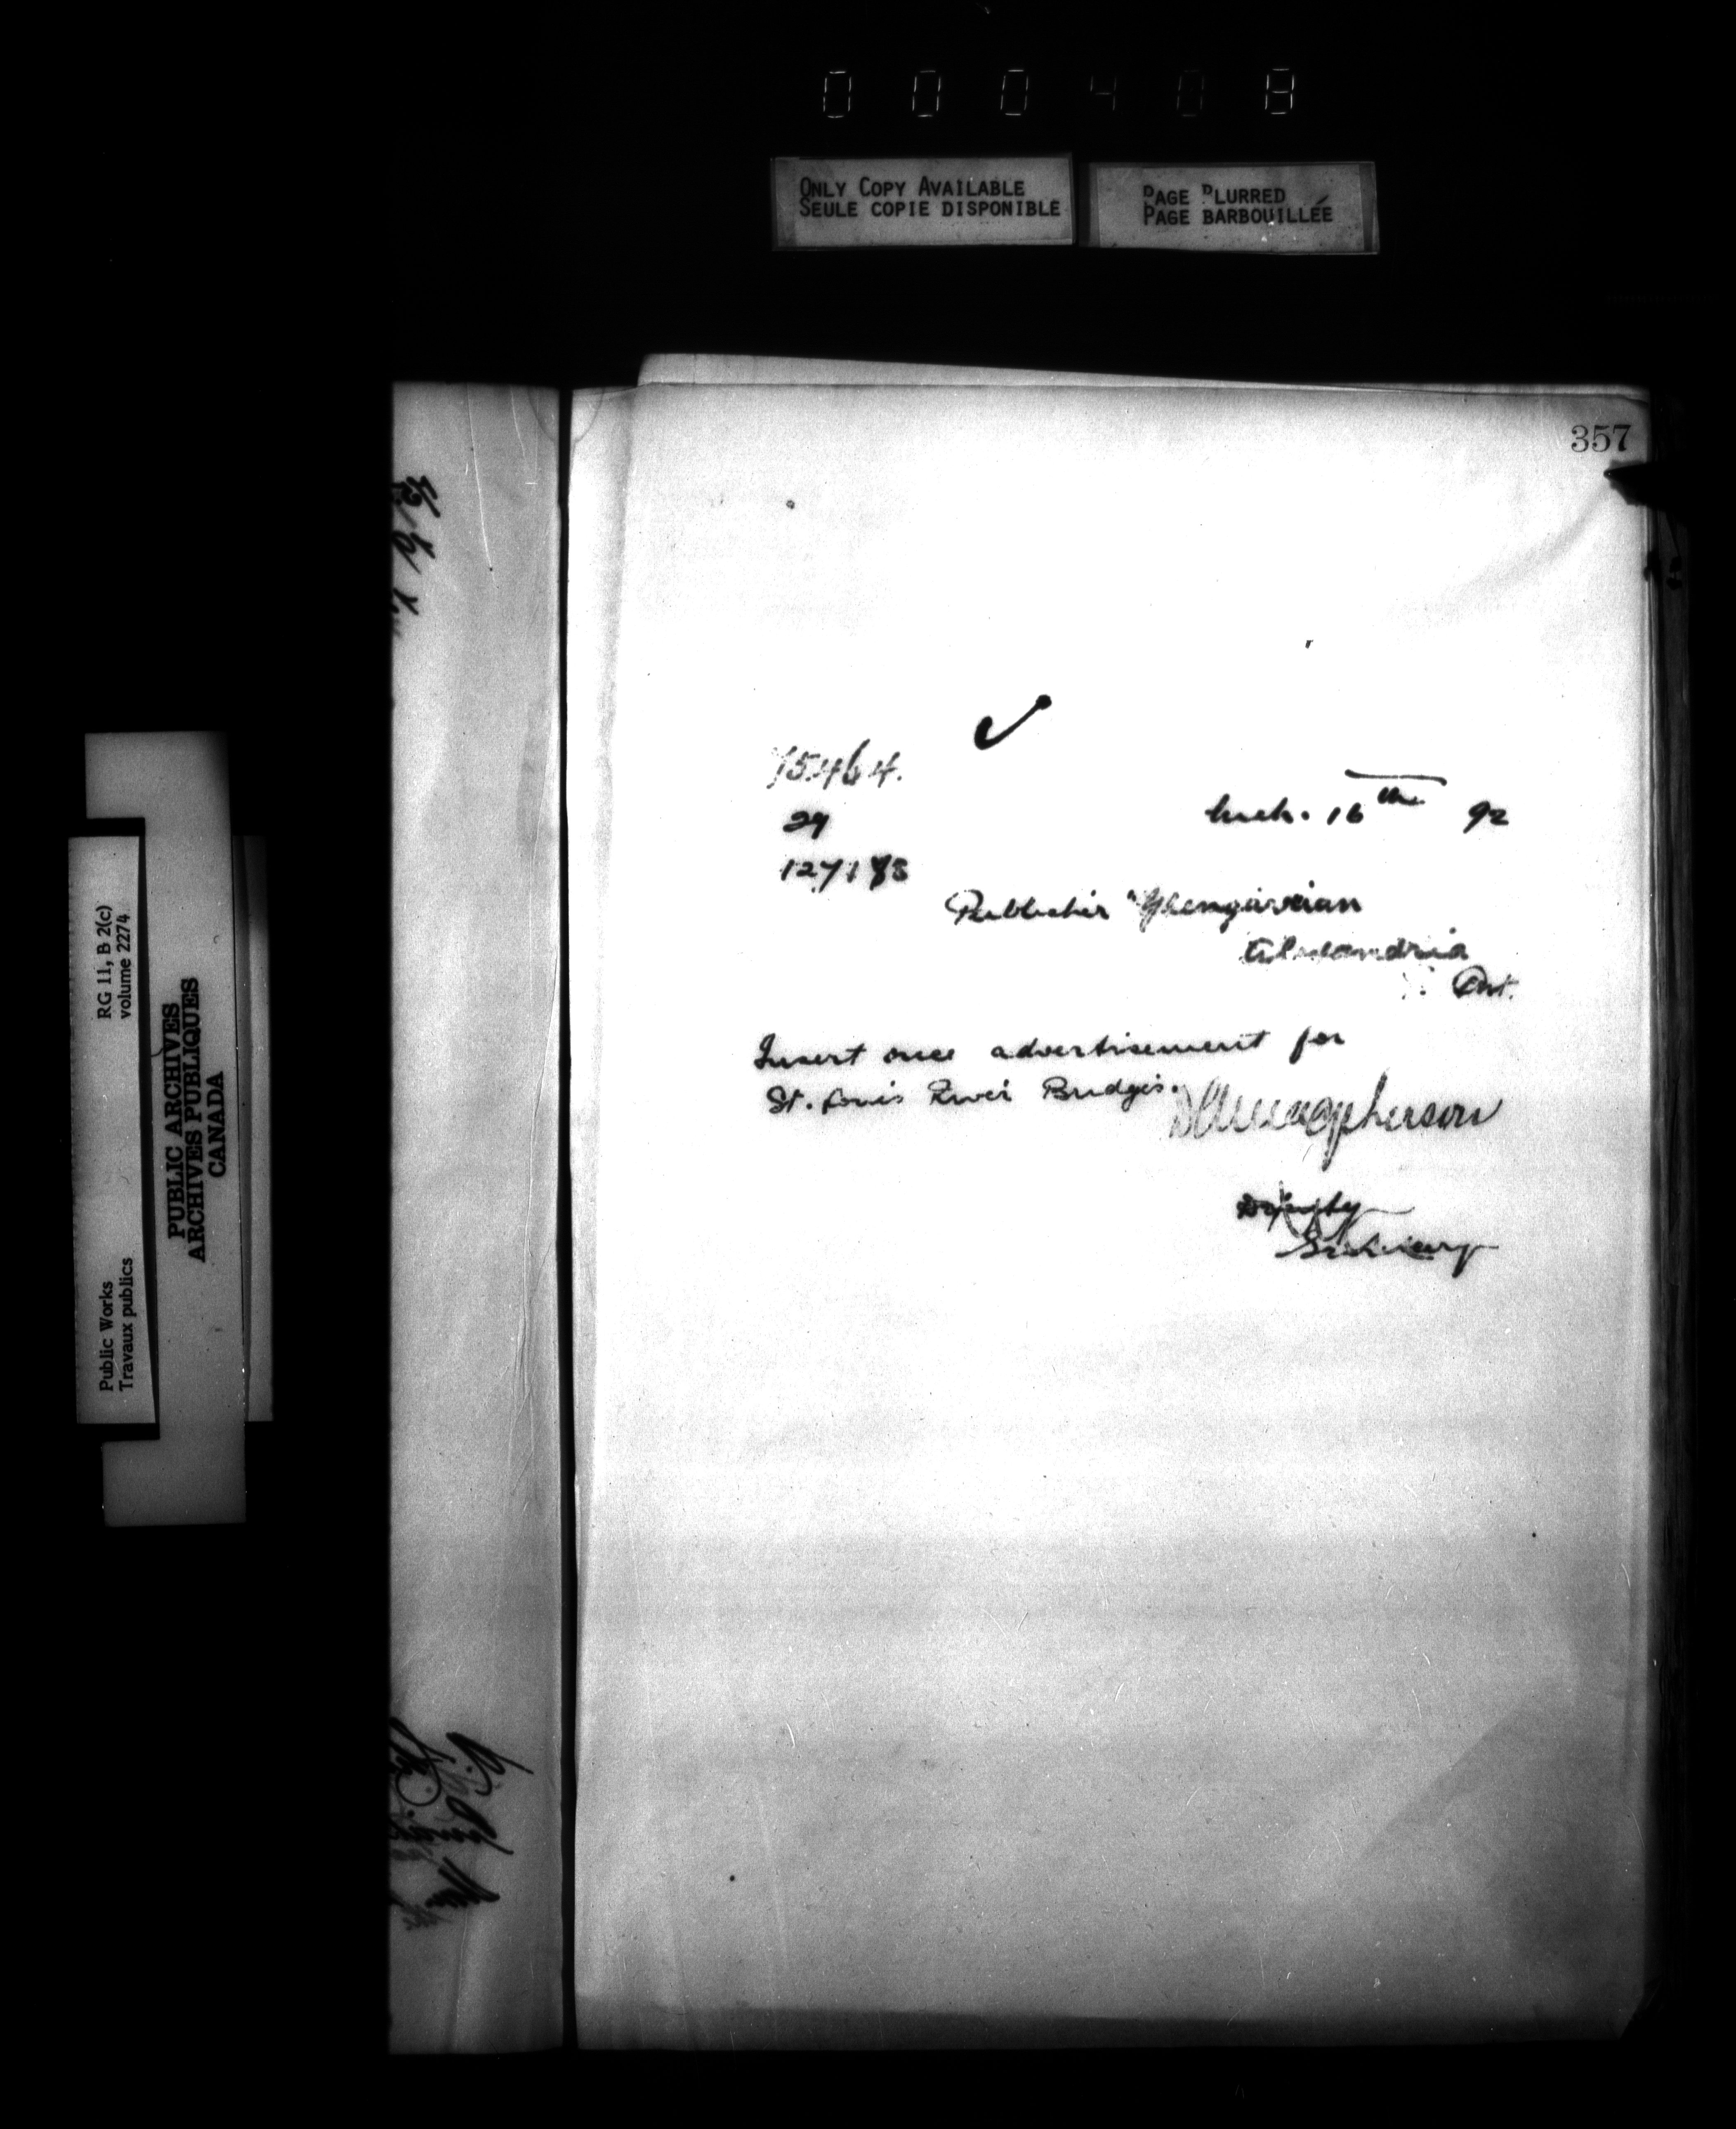 000408
ONLY COPY AVAILABLE
SEULE COPIE DISPONIBLE
PAGE BLURRED
PAGE BARBOUILLÉE
RG 11, B 2(c)
volume 2274
Public Works
Travaux publics
PUBLIC ARCHIVES
ARCHIVES PUBLIQUES
CANADA
357
15464.
29
Mch. 16th 92
Publisher "Glengarrian
Alexandria
Ont.
Insert once advertisement for
St. Louis River Bridges.
Macpherson
Deputy
Secretary